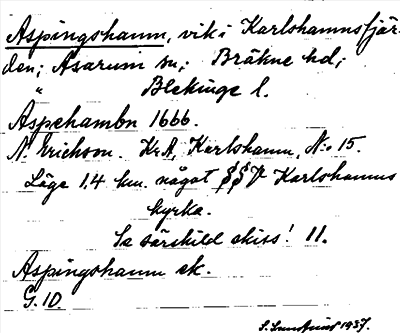 Aspingshamn, vik i Karlshamnsfjär-
den; Asarum sn; Bräkne hd;
" Blekinge l.
Aspehambn 1666.
N. Erichson. KrA, Karlshamn, N:o 15.
Läge 1,4 km. något S Karlshamns
kyrka.
Se särskild skiss! 11.
Aspingshamn ek.
G. 10.
1937.